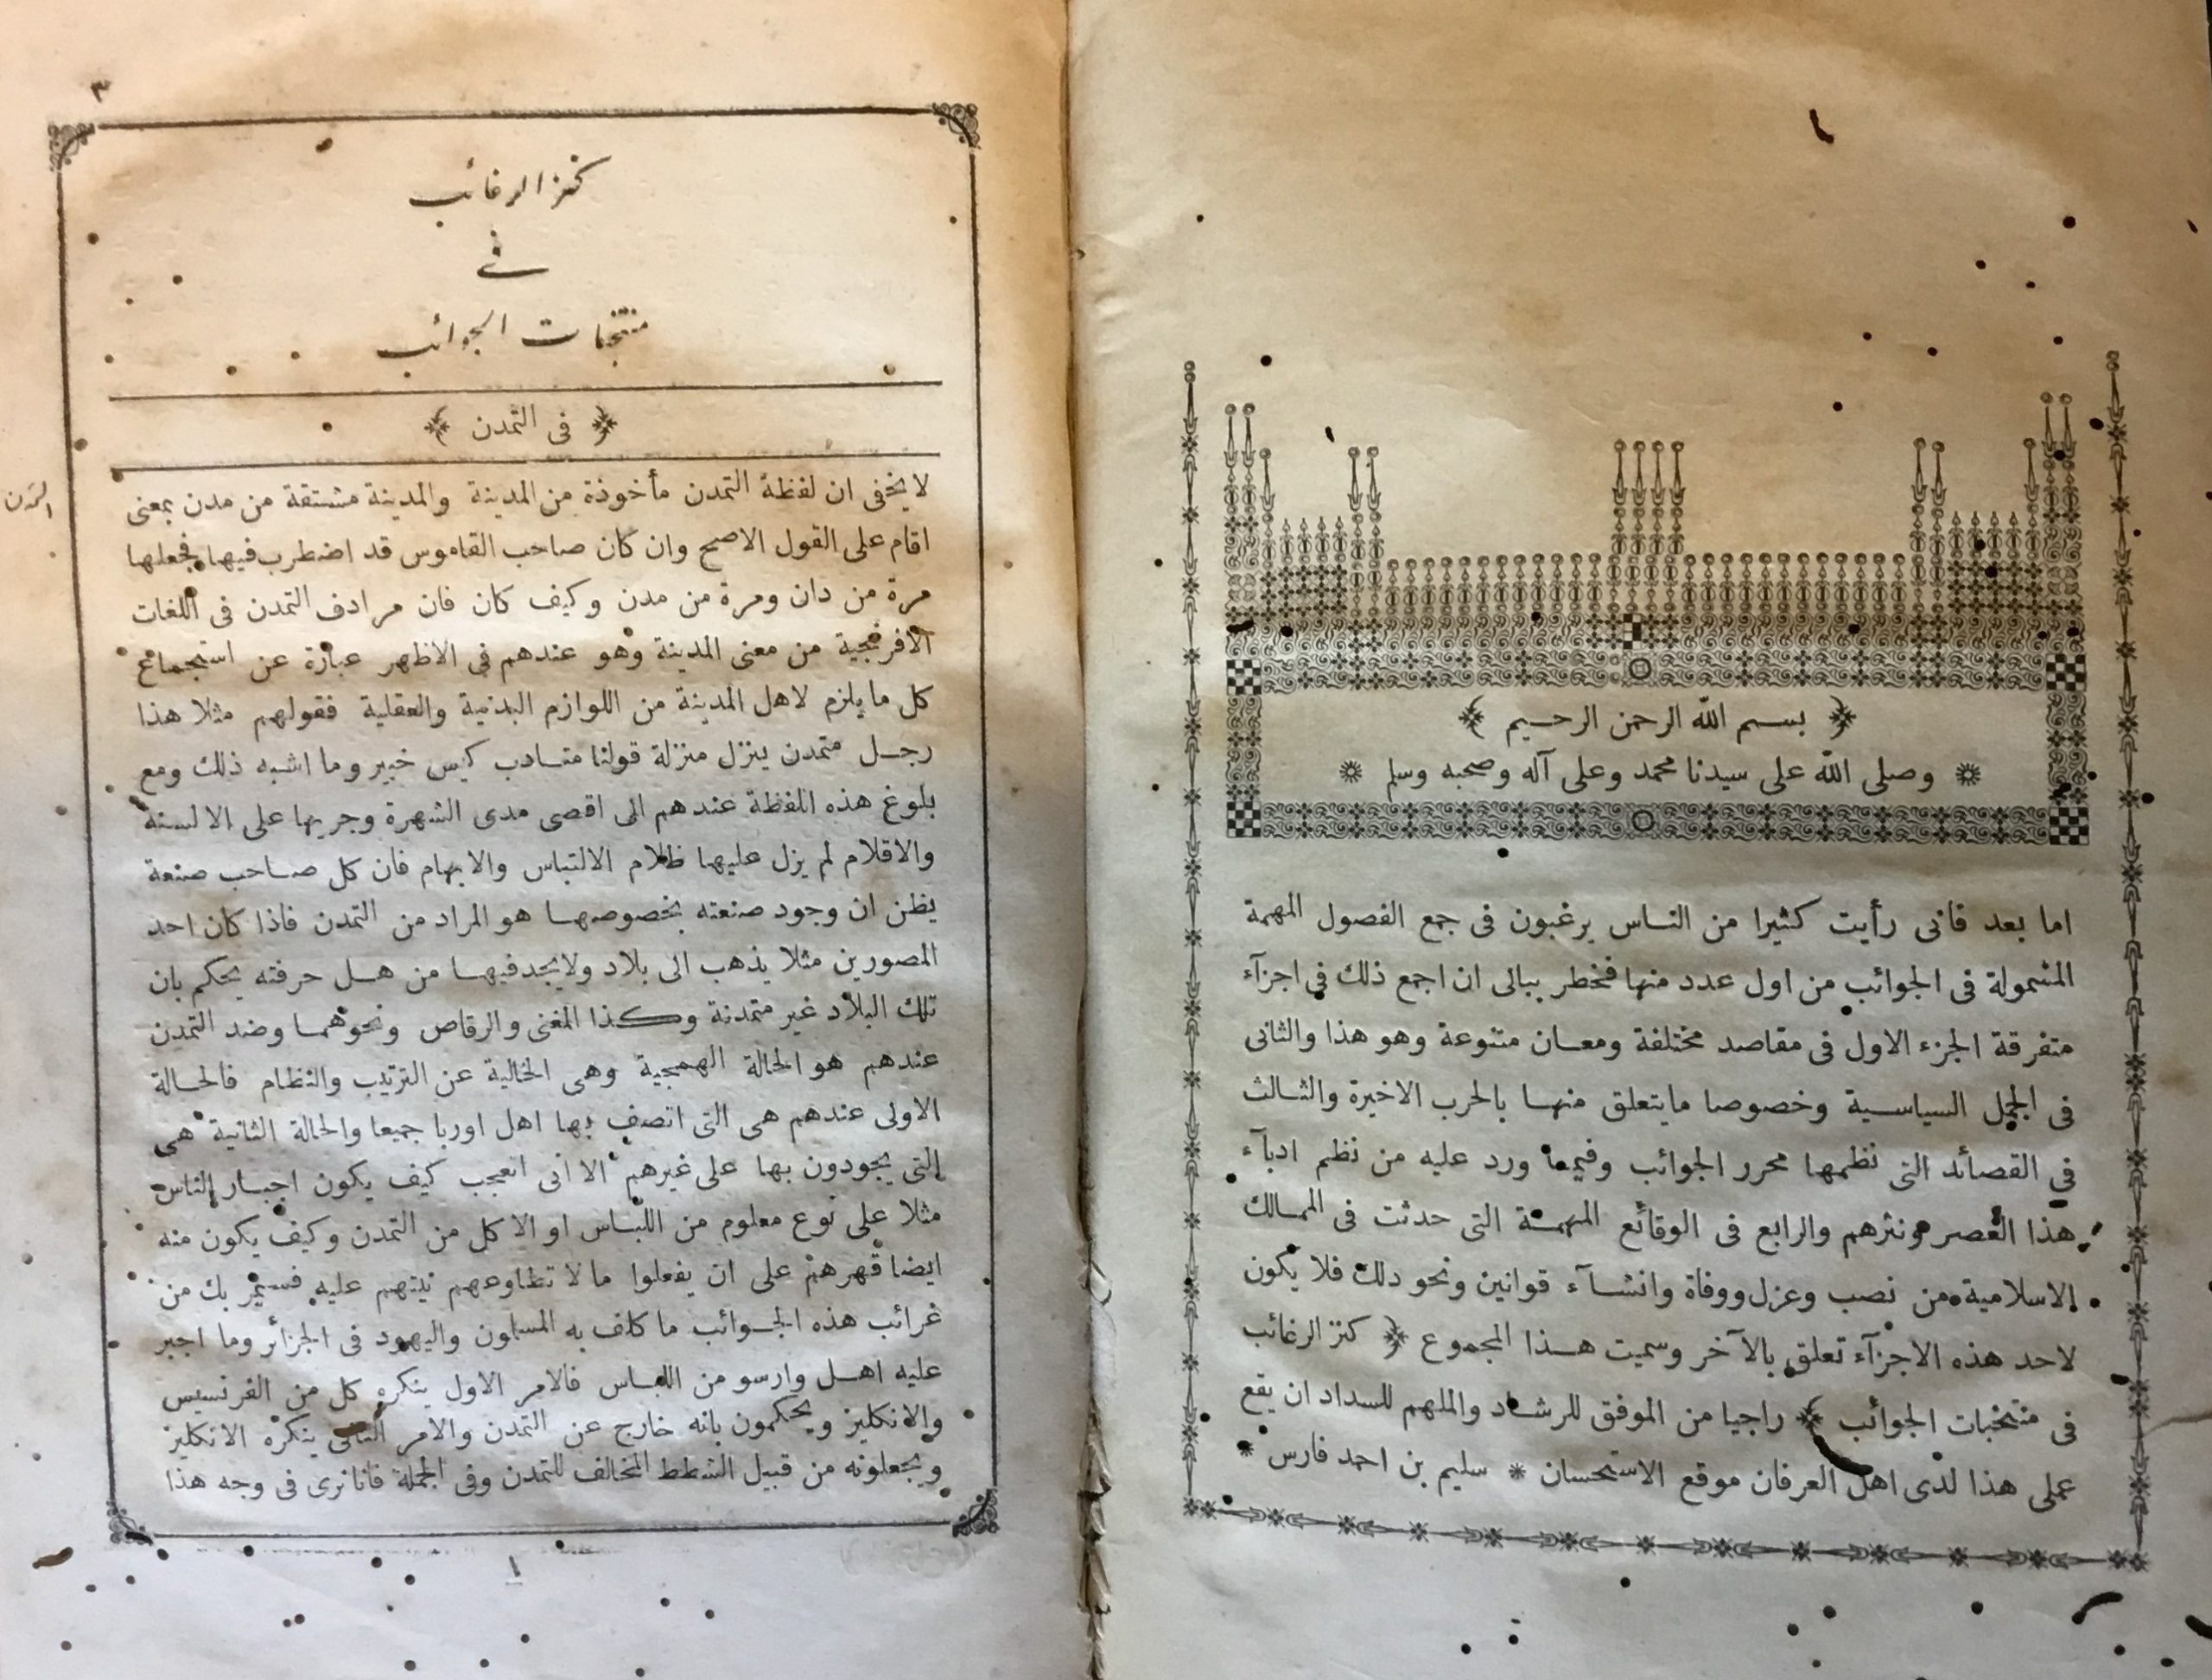 بسم الله الرحمن الرحيم
وصلى الله على سيدنا محمد وعلى آله وصحبه وسلم
اما بعد فانى رأيت كثيرا من الناس يرغبون فى جمع الفصول المهمة
المشمولة فى الجوائب من اول عدد منها فخطر ببالى ان اجمع ذلك فى اجزآء
متفرقة الجزء الاول فى مقاصد مختلفة ومعان متنوعة وهو هذا والثانى
فى الجمل السياسية وخصوصا ما يتعلق منها بالحرب الاخيرة والثالث
فى القصائد التى نظمها محرر الجوائب وفيما ورد عليه من نظم ادبآء
هذا العصر ونثرهم والرابع فى الوقائع المهمة التى حدثت فى الممالك
الاسلامية من نصب وعزل ووفاة وانشآء قوانين ونحو ذلك فلا يكون
لاحد هذه الاجزآء تعلق بالآخر وسميت هذا المجموع ﴿ كنز الرغائب
فى منتخبات الجوائب ﴾ راجيا من الموفق للرشاد والملهم للسداد ان يقع
عملى هذا لدى اهل العرفان موقع الاستحسان * سليم بن احمد فارس *
٣
كنز الرغائب
فى
منتخبات الجوائب
﴿ فى التمدن ﴾
التمدن
لا يخفى ان لفظة التمدن مأخوذة من المدينة والمدينة مشتقة من مدن بمعنى
اقام على القول الاصح وان كان صاحب القاموس قد اضطرب فيها فجعلها
مرة من دان ومرة من مدن وكيف كان فان مرادف التمدن فى اللغات
الافرنجية من معنى المدينة وهو عندهم فى الاظهر عبارة عن استجماع
كل ما يلزم لاهل المدينة من اللوازم البدنية والعقلية فقولهم مثلا هذا
رجل متمدن ينزل منزلة قولنا متادب كيس خبير وما اشبه ذلك ومع
بلوغ هذه اللفظة عندهم الى اقصى مدى الشهرة وجريها على الالسنة
والاقلام لم يزل عليها ظلام الالتباس والابهام فان كل صاحب صنعة
يظن ان وجود صنعته بخصوصها هو المراد من التمدن فاذا كان احد
المصورين مثلا يذهب الى بلاد ولا يجد فيها من هل حرفته يحكم بان
تلك البلاد غير متمدنة وكذا المغنى والرقاص ونحوهما وضد التمدن
عندهم هو الحالة الهمجية وهى الخالية عن الترتيب والنظام فالحالة
الاولى عندهم هى التى اتصف بها اهل اوربا جميعا والحالة الثانية هى
التى يجودون بها على غيرهم الا انى اتعجب كيف يكون اجبار الناس
مثلا على نوع معلوم من اللباس او الاكل من التمدن وكيف يكون منه
ايضا قهرهم على ان يفعلوا ما لا تطاوعهم نيتهم عليه فستمر بك من
غرائب هذه الجوائب ما كلف به المسلمون واليهود فى الجزائر وما اجبر
عليه اهل وارسو من اللباس فالامر الاول ينكره كل من الفرنسيس
والانكليز ويحكمون بانه خارج عن التمدن والامر الثانى ينكره الانكليز
ويجعلونه من قبيل الشطط المخالف للتمدن وفى الجملة فانا نرى فى وجه هذا
١